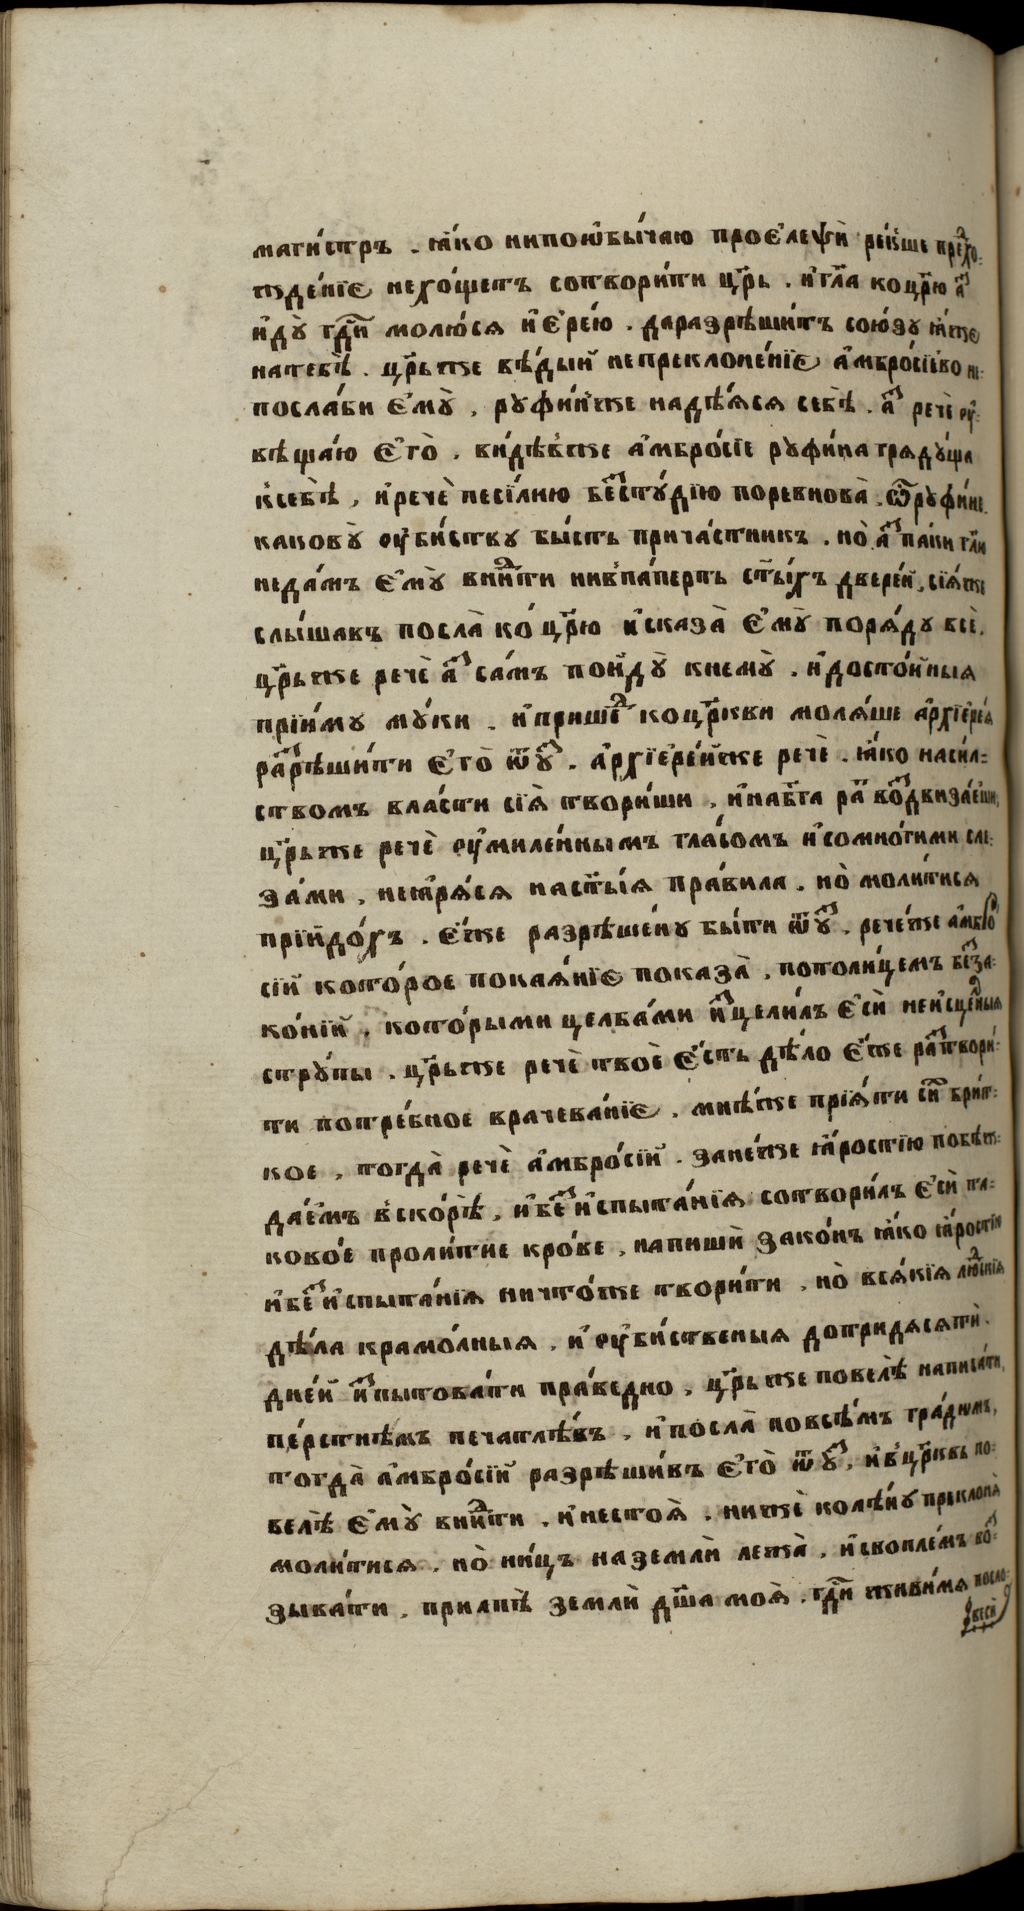 маги́стръ . ꙗ҆́ко нипоѡ҆бы́чаю проє҆леѱѝ ре́кше прехо:
жде́нїє нехо́щетъ сотвори́ти цр҃ь . и҆гл҃а коцр҃ю а҆з̾
и҆дꙋ̀ гдⷭ҇и молю́ся и҆є҆ре́ю . даразрѣши́тъ сою́зꙋ ꙗ҆́же
натебѣ̀ . цр҃ьже вѣ́дый непреклоне́нїє а҆мбро́сїево не:
посла́би є҆мꙋ̀ , рꙋфи́нже надѣ́яся себѣ̀ . а҆з̾ речѐ оу҆:
вѣща́ю є҆го̀ . ви́дѣвже а҆мбро́сїе рꙋфи́на грядꙋ́ща
ксебѣ̀ , и҆речѐ песїлию бе́з̾стꙋ́дїю поревнова̀ . ѽрꙋфи́не .
каковꙋ̀ оу҆би́ствꙋ бы́сть прича́стникъ . но̀ а҆з̾ па́ки гл҃ю
неда́мъ є҆мꙋ̀ вни́ти нивпа́перть ст҃ы́хъ двере́й , сїя́же
слы́шавъ посла̀ коцр҃ю и҆сказа̀ є҆мꙋ̀ поря́дꙋ всѐ .
цр҃ьже речѐ а҆з̾ са́мъ пойдꙋ̀ кнемꙋ̀ . и҆досто́йныя
прїи́мꙋ мꙋ́ки . и҆прише́д коцр҃кви моля́ше а҆рхїере́я
раз̾рѣши́ти є҆го̀ ѿꙋ҆з̾ . а҆рхїере́йже речѐ . ꙗ҆́ко насил̾:
ствомъ вла́сти сїя̀ твори́ши , и҆наб҃га ра́з̾ воз̾двиза́еши ,
цр҃ьже речѐ оу҆миле́ннымъ гла́сомъ и҆сомно́гими сле:
за́ми , нещꙗ́ся наст҃ы́я пра́вила . но̀ моли́тися
прїидо́хъ . є҆́же разрѣше́нꙋ бы́ти ѿꙋ҆з̾ . рече́же а҆мбро́:
сїй кото́рое покая́нїє показа̀ , потоли́цемъ без̾за:
ко́нїй . кото́рыми целба́ми и҆з̾цели́лъ є҆сѝ неи҆сце́лныя
стрꙋ́пы . цр҃ьже речѐ твоѐ є҆́сть дѣ́ло є҆́же раз̾твори́:
ти потре́бное врачева́нїє . мнѣ́же прїя́ти сїѐ брит:
кое , тогда̀ речѐ а҆мбро́сїй . зане́же ꙗ҆́ростїю побѣж:
да́ємъ вско́рѣ , и҆без̾ и҆спыта́нїя сотвори́лъ є҆сѝ та:
ково́е проли́тие кро́ве , напишѝ зако́нъ ꙗ҆́ко ꙗ҆́ростїю
и҆без̾ и҆спыта́нїя ничто́же твори́ти , но̀ вся́кїя лю́дскїя
дѣ́ла крамо́лныя , и҆ оу҆би́ственыя дотридясятѝ .
дне́й и҆з̾пытова́ти пра́ведно , цр҃ьже повелѣ̀ написа́ти ,
пе́рстнѣмъ печатлѣ́въ , и҆посла̀ повсѣ́мъ гра́домъ ,
тогда̀ а҆мбро́сїй разрѣши́въ є҆го̀ ѿꙋ҆з̾ , и҆вцр҃ковь по:
велѣ̀ є҆мꙋ̀ вни́ти . и҆нестоя̀ . нижѐ колѣ́нꙋ преклоня̀
моли́тися , но̀ ни́цъ наземлѝ лежа̀ , и҆свопле́мъ воз̾:
зыва́ти , прилпѣ̀ землѝ дш҃а моя̀ . гдⷭ҇и живи́мя посло:
весѝ